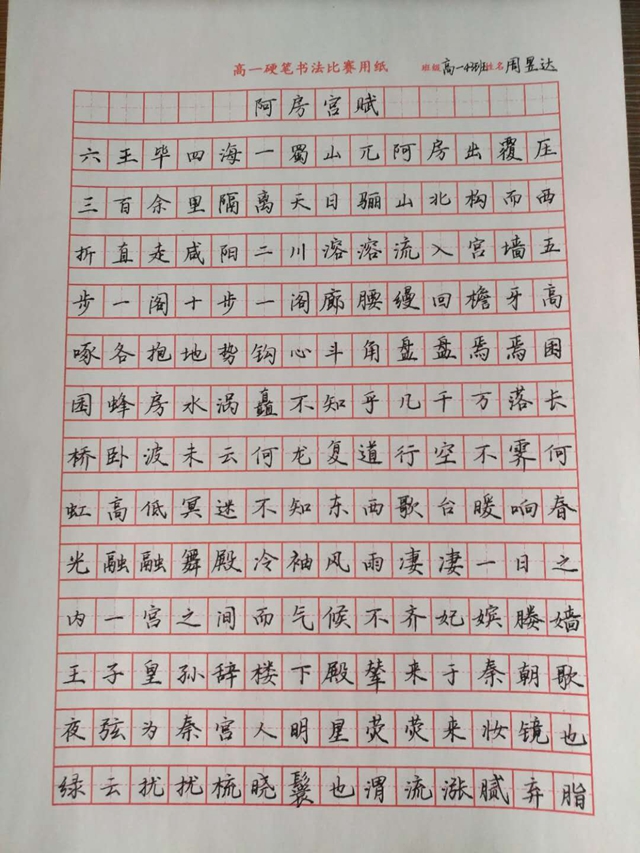 高一硬笔书法比赛用纸 班级高一4班姓名周昱达
阿房宫赋
六王毕四海一蜀山兀阿房出覆压
三百余里隔离天日骊山北构而西
折直走咸阳二川溶溶流入宫墙五
步一阁十步一阁廊腰缦回檐牙高
啄各抱地势钩心斗角盘盘焉焉囷
囷蜂房水涡矗不知乎几千万落长
桥卧波未云何龙复道行空不霁何
虹高低冥迷不知东西歌台暖响春
光融融舞殿冷袖风雨凄凄一日之
内一宫之间而气候不齐妃嫔媵嫱
王子皇孙辞楼下殿辇来于秦朝歌
夜弦为秦宫人明星荧荧来妆镜也
绿云扰扰梳晓鬟也渭流涨腻弃脂